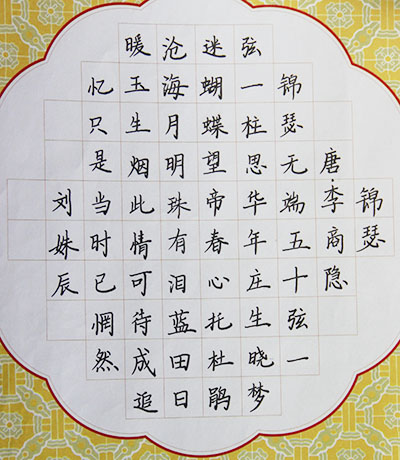 锦瑟
唐·李商隐
锦瑟无端五十弦一
弦一柱思华年庄生晓梦
迷蝴蝶望帝春心托杜鹃
沧海月明珠有泪蓝田日
暖玉生烟此情可待成追
忆只是当时已惘然
刘姝辰